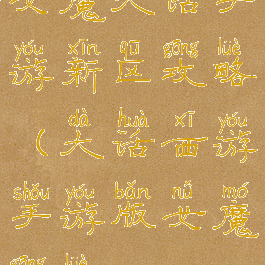 女魔大话手
yóu xīn qū gōng lüè
游新区攻略
dà huà xī yóu
(大话西游
shǒu yóu bǎn nǚ mó
手游版女魔
gōng lüè